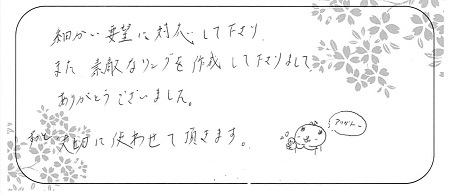 細かい要望に対応して下さり
また素敵なリングを作成して下さりまして
ありがとうございました。
ずっと大切に使わせて頂きます。
アリガトー